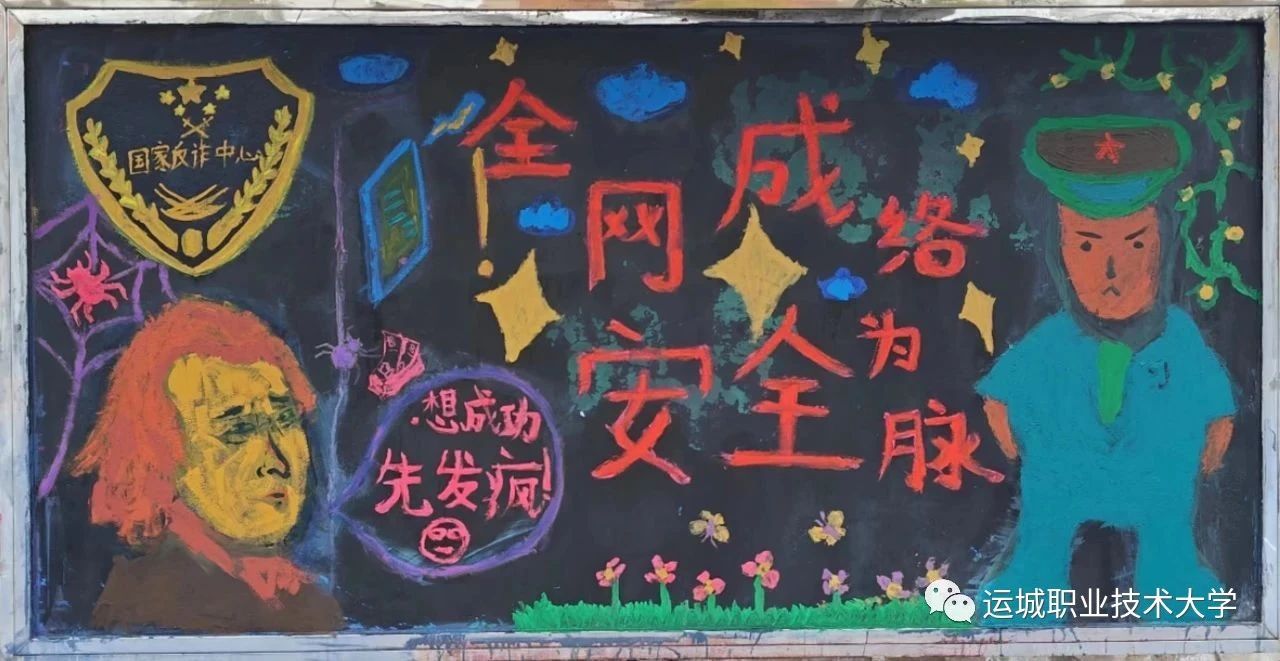 国家反诈中心
全 成
网 络
安 全 为
脉
想成功
先发疯!
运城职业技术大学